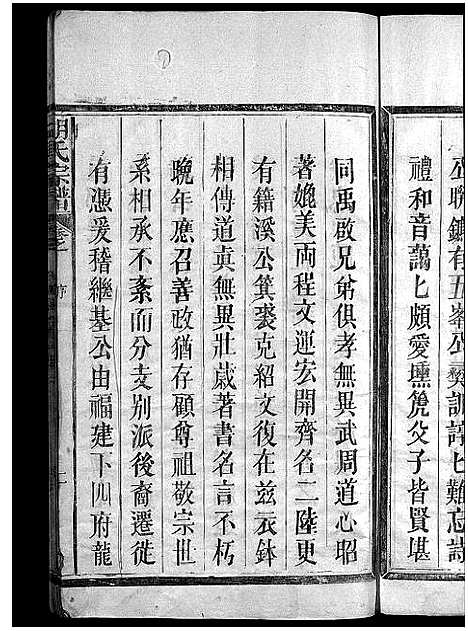 丞聯鑣有五峯公獎訓諄匕難忘詩
禮和音藹匕頗愛壎篪父子皆賢堪
同禹啟兄弟俱孝無異武周道心昭
著媲美両程文運宏開齊名二陸更
有籍溪公箕裘克紹文復在兹衣鉢
相傳道真無異壯歲著書名言不朽
晚年應召善政猶存顧尊祖敬宗世
系相承不紊而分支别派後裔遷徙
有憑爰稽繼基公由福建下四府龍
胡氏宗譜 卷之一 序 二